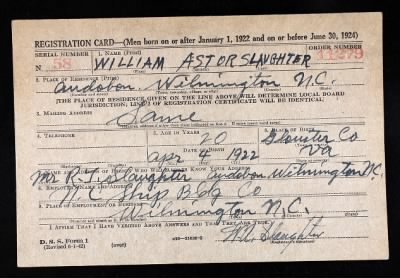 REGISTRATION CARD—(Men born on or after January 1, 1922 and on or before June 30, 1924)
SERIAL NUMBER 1. NAME (Print) ORDER NUMBER
N 58 WILLIAM ASTOR SLAUGHTER 11279
(First) (Middle) (Last)
2. PLACE OF RESIDENCE (Print)
Audobon Wilmington N.C.
[THE PLACE OF RESIDENCE GIVEN ON THE LINE ABOVE WILL DETERMINE LOCAL BOARD
JURISDICTION; LINE 2 OF REGISTRATION CERTIFICATE WILL BE IDENTICAL]
3. MAILING ADDRESS
Same
4. TELEPHONE 5. AGE IN YEARS 6. PLACE OF BIRTH
20 Gloucester Co
DATE OF BIRTH
Apr 4 1922 Va
Mr R. T. Slaughter Audobon Wilmington N.C.
N.C. Ship Bldg Co
Wilmington N.C.
I AFFIRM THAT I HAVE VERIFIED ABOVE ANSWERS AND THAT THEY ARE TRUE.
W.A. Slaughter
D. S. S. Form 1
(Revised 6-1-42) (over)